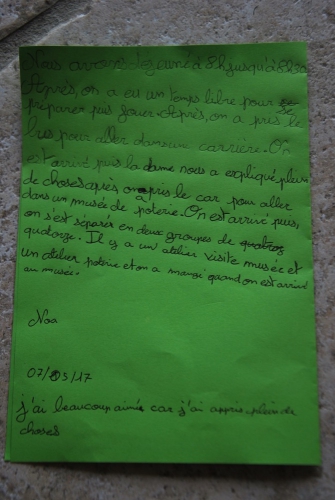 Nous avons déjeuné à 8h jusqu'à 8h30
Après, on a eu un temps libre pour se
préparer puis jouer. Après, on a pris le
bus pour aller dans une carrière. On
est arrivé puis la dame nous a expliqué plein
de choses après, on a pris le car pour aller
dans un musée de poterie. On est arrivé puis,
on s'est séparés en deux groupes de
quatorze. Il y a un atelier visite musée et
un atelier poterie et on a mangé quand on est arrivé
au musée.
Noa
07/05/17
j'ai beaucoup aimé car j'ai appris plein de
choses